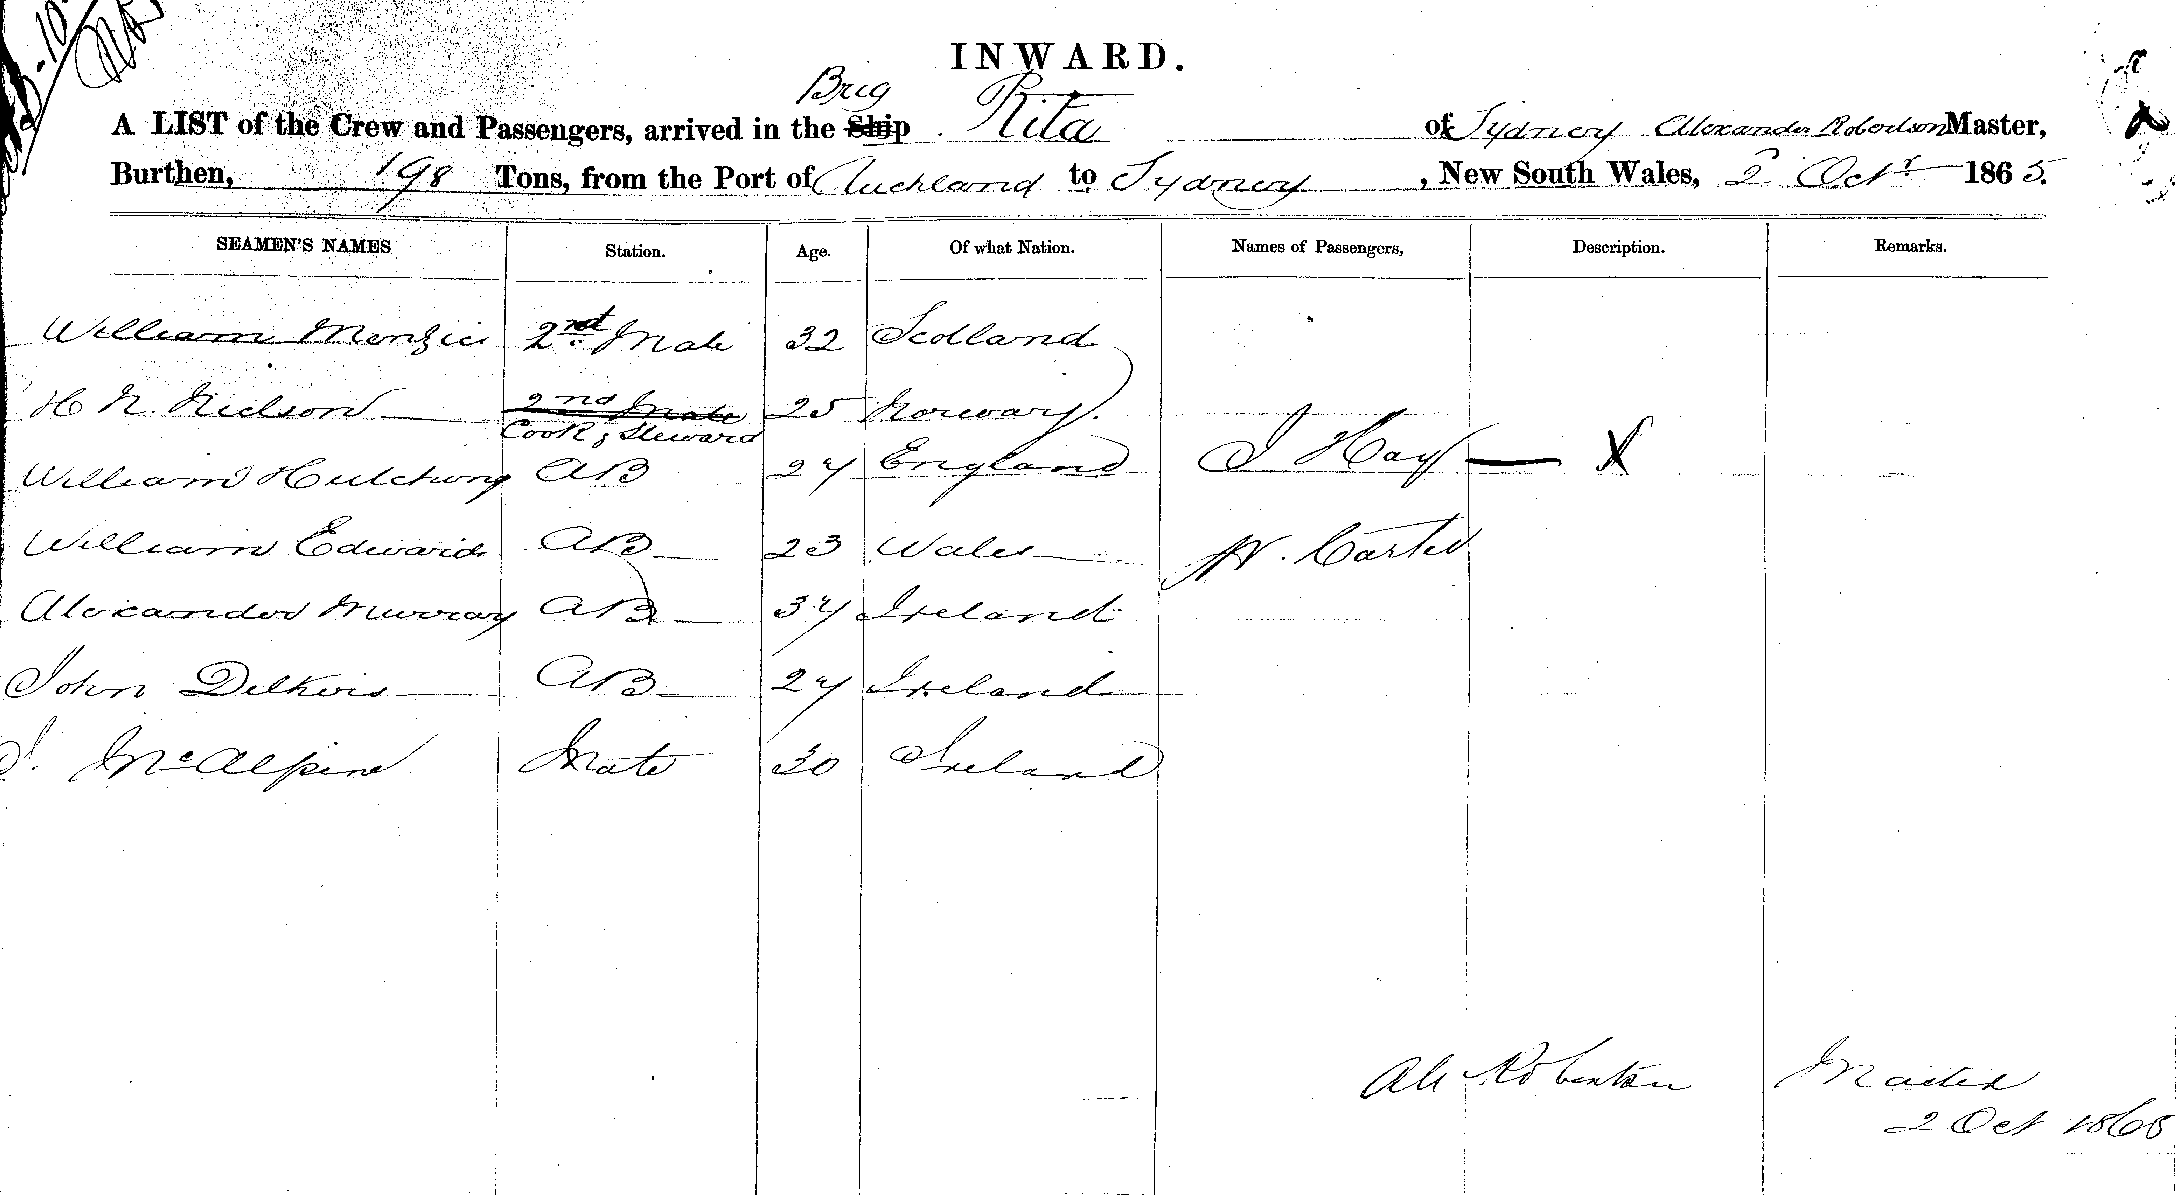 INWARD.
Brig
A LIST of the Crew and Passengers, arrived in the Ship Rita of Sydney Alexander Robertson Master,
Burthen, 198 Tons, from the Port of Auckland to Sydney, New South Wales, 2 Octr 1865.
SEAMEN'S NAMES Station. Age. Of what Nation. Names of Passengers, Description. Remarks.
William Menzies 2nd Mate 32 Scotland
H N Nielson 2nd Mate 25 Norway.
Cook & Steward
William Hutchings AB 24 England J Hay — X
William Edwards AB 23 Wales W. Carter
Alexander Murray AB 34 Ireland
John AB 24 Ireland
J. McAlpine Mate 30 Ireland
Alx Robertson Master
2 Oct 1865